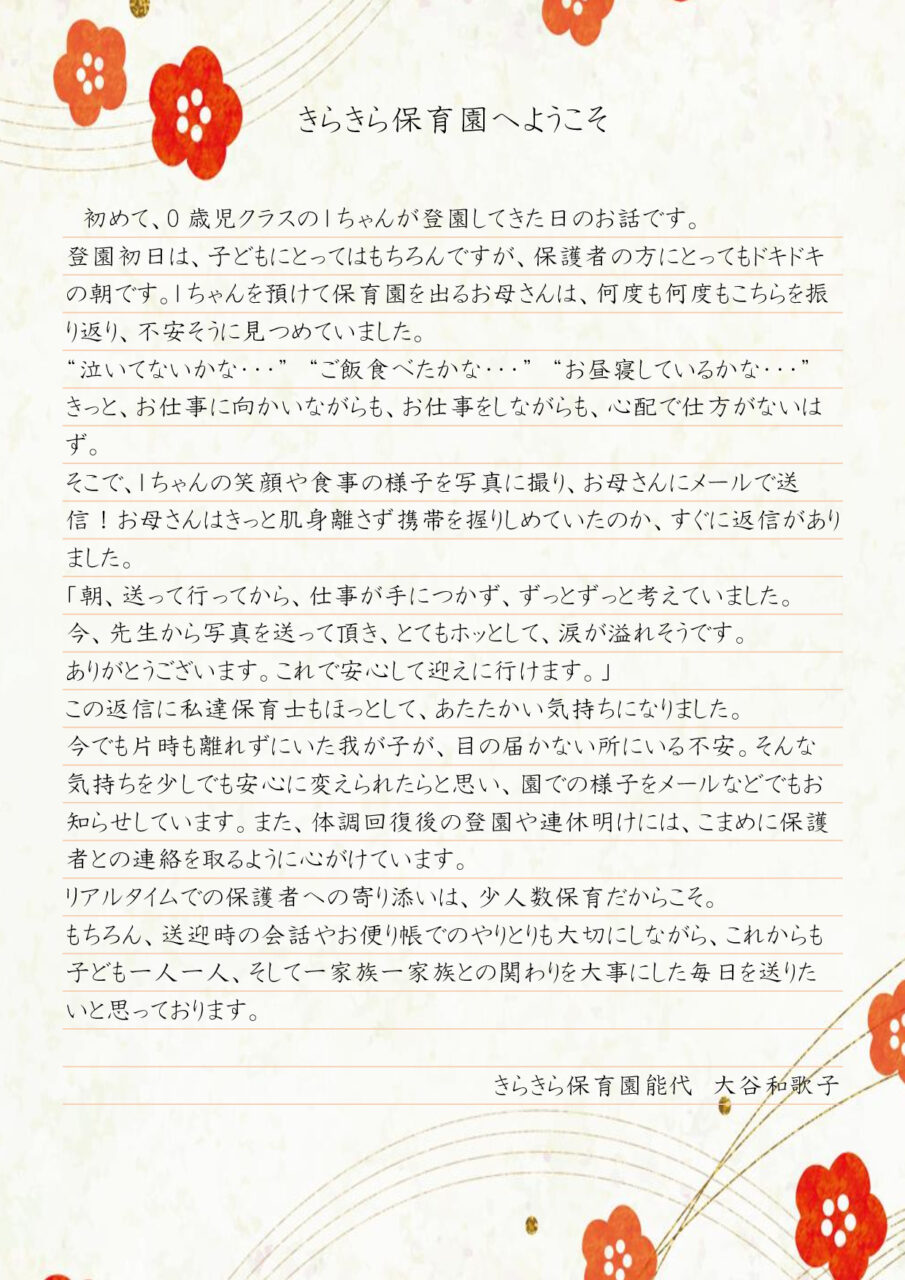 きらきら保育園へようこそ
初めて、0歳児クラスのIちゃんが登園してきた日のお話です。
登園初日は、子どもにとってはもちろんですが、保護者の方にとってもドキドキ
の朝です。Iちゃんを預けて保育園を出るお母さんは、何度も何度もこちらを振
り返り、不安そうに見つめていました。
“泣いてないかな・・・” “ご飯食べたかな・・・” “お昼寝しているかな・・・”
きっと、お仕事に向かいながらも、お仕事をしながらも、心配で仕方がないは
ず。
そこで、Iちゃんの笑顔や食事の様子を写真に撮り、お母さんにメールで送
信！お母さんはきっと肌身離さず携帯を握りしめていたのか、すぐに返信があり
ました。
「朝、送って行ってから、仕事が手につかず、ずっとずっと考えていました。
今、先生から写真を送って頂き、とてもホッとして、涙が溢れそうです。
ありがとうございます。これで安心して迎えに行けます。」
この返信に私達保育士もほっとして、あたたかい気持ちになりました。
今でも片時も離れずにいた我が子が、目の届かない所にいる不安。そんな
気持ちを少しでも安心に変えられたらと思い、園での様子をメールなどでもお
知らせしています。また、体調回復後の登園や連休明けには、こまめに保護
者との連絡を取るように心がけています。
リアルタイムでの保護者への寄り添いは、少人数保育だからこそ。
もちろん、送迎時の会話やお便り帳でのやりとりも大切にしながら、これからも
子ども一人一人、そして一家族一家族との関わりを大事にした毎日を送りた
いと思っております。
きらきら保育園能代 大谷和歌子